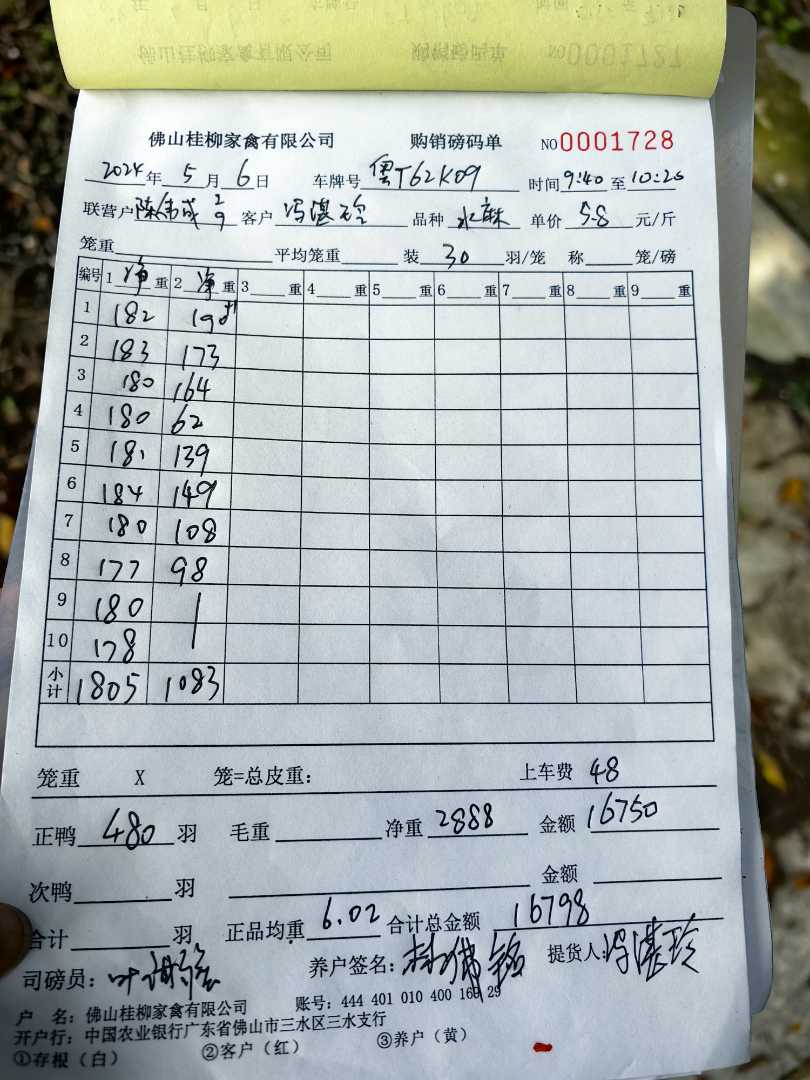 佛山桂柳家禽有限公司 购销磅码单 NO0001728
2024年5月6日 车牌号 粤T62K09 时间9:40至10:20
联营户 客户 冯湛玲 品种 水麻 单价 5.8 元/斤
笼重 平均笼重 装 30 羽/笼 称 笼/磅
编号 1 净 重 2 净 重 3 重 4 重 5 重 6 重 7 重 8 重 9 重
1 182
2 183 173
3 180 164
4 180 62
5 181 139
6 184 149
7 180 108
8 177 98
9 180
10 178
小计 1805 1083
笼重 X 笼=总皮重: 上车费 48
正鸭 480 羽 毛重 净重 2888 金额 16750
次鸭 羽 金额
合计 羽 正品均重 6.02 合计总金额 16798
司磅员: 养户签名: 提货人: 冯湛玲
户 名: 佛山桂柳家禽有限公司 账号: 444 401 010 400 168 29
开户行: 中国农业银行广东省佛山市三水区三水支行
①存根(白) ②客户(红) ③养户(黄)